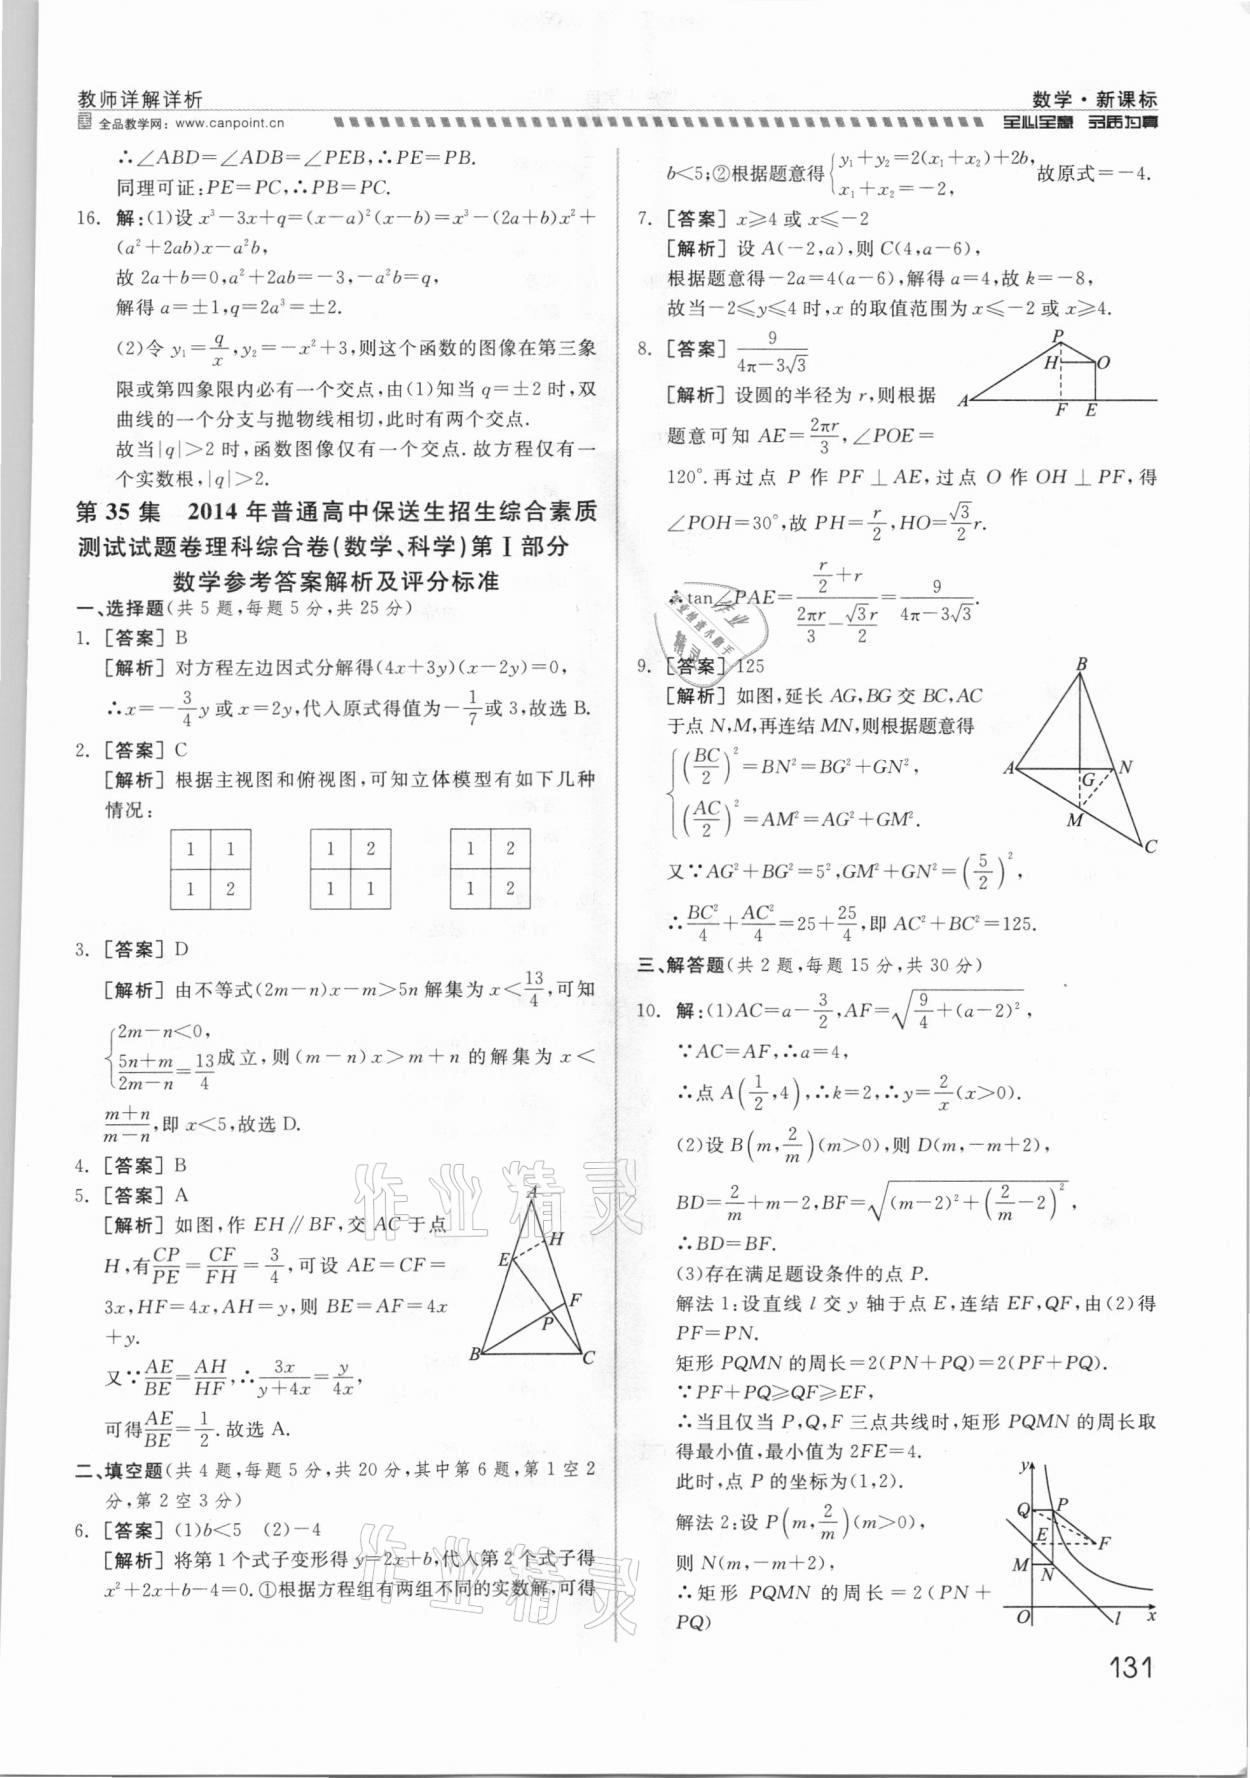 教师详解详析
全品教学网：www.canpoint.cn
数学·新课标
全心全意 品质为真
∴∠ABD=∠ADB=∠PEB,∴PE=PB.
同理可证:PE=PC,∴PB=PC.
16. 解:(1)设 x³-3x+q=(x-a)²(x-b)=x³-(2a+b)x²+
(a²+2ab)x-a²b,
故 2a+b=0,a²+2ab=-3,-a²b=q,
解得 a=±1,q=2a³=±2.
(2)令 y₁=q/x,y₂=-x²+3,则这个函数的图像在第三象
限或第四象限内必有一个交点,由(1)知当 q=±2 时,双
曲线的一个分支与抛物线相切,此时有两个交点.
故当|q|>2 时,函数图像仅有一个交点.故方程仅有一
个实数根,|q|>2.
第 35 集 2014 年普通高中保送生招生综合素质
测试试题卷理科综合卷(数学、科学)第 Ⅰ 部分
数学参考答案解析及评分标准
一、选择题(共 5 题,每题 5 分,共 25 分)
1. [答案] B
[解析] 对方程左边因式分解得(4x+3y)(x-2y)=0,
∴x=-3/4 y 或 x=2y,代入原式得值为-1/7或 3,故选 B.
2. [答案] C
[解析] 根据主视图和俯视图,可知立体模型有如下几种
情况:
1 1 1 2 1 2
1 2 1 1 1 2
3. [答案] D
[解析] 由不等式(2m-n)x-m>5n 解集为 x<13/4,可知
{2m-n<0,
(5n+m)/(2m-n)=13/4 成立,则(m-n)x>m+n 的解集为 x<
(m+n)/(m-n),即 x<5,故选 D.
4. [答案] B
5. [答案] A
[解析] 如图,作 EH∥BF,交 AC 于点
H,有CP/PE=CF/FH=3/4,可设 AE=CF=
3x,HF=4x,AH=y,则 BE=AF=4x
+y.
又∵AE/BE=AH/HF,∴3x/(y+4x)=y/4x,
可得AE/BE=1/2.故选 A.
A
H
E
F
P
B
C
二、填空题(共 4 题,每题 5 分,共 20 分,其中第 6 题,第 1 空 2
分,第 2 空 3 分)
6. [答案] (1)b<5 (2)-4
[解析] 将第 1 个式子变形得 y=2x+b,代入第 2 个式子得
x²+2x+b-4=0.①根据方程组有两组不同的实数解,可得
b<5;②根据题意得{y₁+y₂=2(x₁+x₂)+2b,
x₁+x₂=-2, 故原式=-4.
7. [答案] x≥4 或 x≤-2
[解析] 设 A(-2,a),则 C(4,a-6),
根据题意得-2a=4(a-6),解得 a=4,故 k=-8,
故当-2≤y≤4 时,x 的取值范围为 x≤-2 或 x≥4.
8. [答案] 9/(4π-3√3)
[解析] 设圆的半径为 r,则根据
题意可知 AE=2πr/3,∠POE=
120°.再过点 P 作 PF⊥AE,过点 O 作 OH⊥PF,得
∠POH=30°,故 PH=r/2,HO=√3/2 r.
∴tan∠PAE=(r/2+r)/(2πr/3-√3r/2)=9/(4π-3√3).
P
H
O
A
F E
9. [答案] 125
[解析] 如图,延长 AG,BG 交 BC,AC
于点 N,M,再连结 MN,则根据题意得
{(BC/2)²=BN²=BG²+GN²,
(AC/2)²=AM²=AG²+GM².
又∵AG²+BG²=5²,GM²+GN²=(5/2)²,
∴BC²/4+AC²/4=25+25/4,即 AC²+BC²=125.
B
A
G
N
M
C
三、解答题(共 2 题,每题 15 分,共 30 分)
10. 解:(1)AC=a-3/2,AF=√(9/4+(a-2)²),
∵AC=AF,∴a=4,
∴点 A(1/2,4),∴k=2,∴y=2/x(x>0).
(2)设 B(m,2/m)(m>0),则 D(m,-m+2),
BD=2/m+m-2,BF=√((m-2)²+(2/m-2)²),
∴BD=BF.
(3)存在满足题设条件的点 P.
解法 1:设直线 l 交 y 轴于点 E,连结 EF,QF,由(2)得
PF=PN.
矩形 PQMN 的周长=2(PN+PQ)=2(PF+PQ).
∵PF+PQ≥QF≥EF,
∴当且仅当 P,Q,F 三点共线时,矩形 PQMN 的周长取
得最小值,最小值为 2FE=4.
此时,点 P 的坐标为(1,2).
解法 2:设 P(m,2/m)(m>0),
则 N(m,-m+2),
∴矩形 PQMN 的周长=2(PN+
PQ)
y
Q
P
E
F
M
N
O
l
x
作业精灵
作业精灵
作业
作业检查小助手
精灵
131